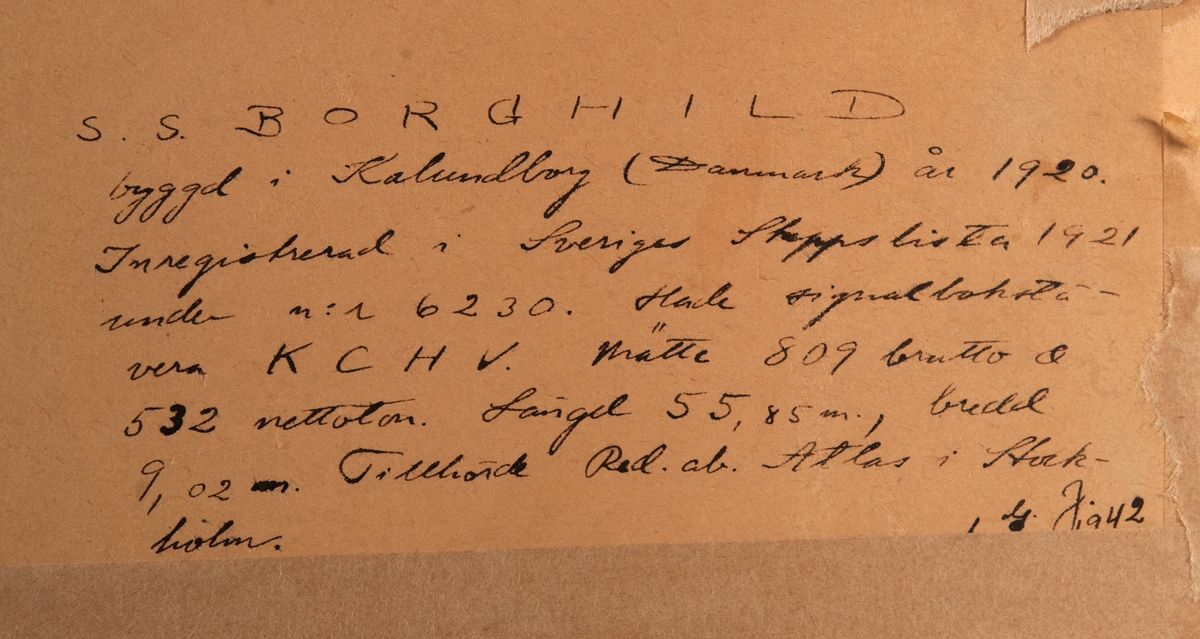 S. S. BORGHILD
byggd i Kalundborg (Danmark) år 1920.
Inregistrerad i Sveriges Skeppslista 1921
under n:r 6230. Hade signalbokstä-
vera K C H V. Mätte 809 brutto &
532 nettoton. Längd 55,85 m., bredd
9,02 m. Tillhörde Red. ab. Atlas i Stock-
holm.
1942